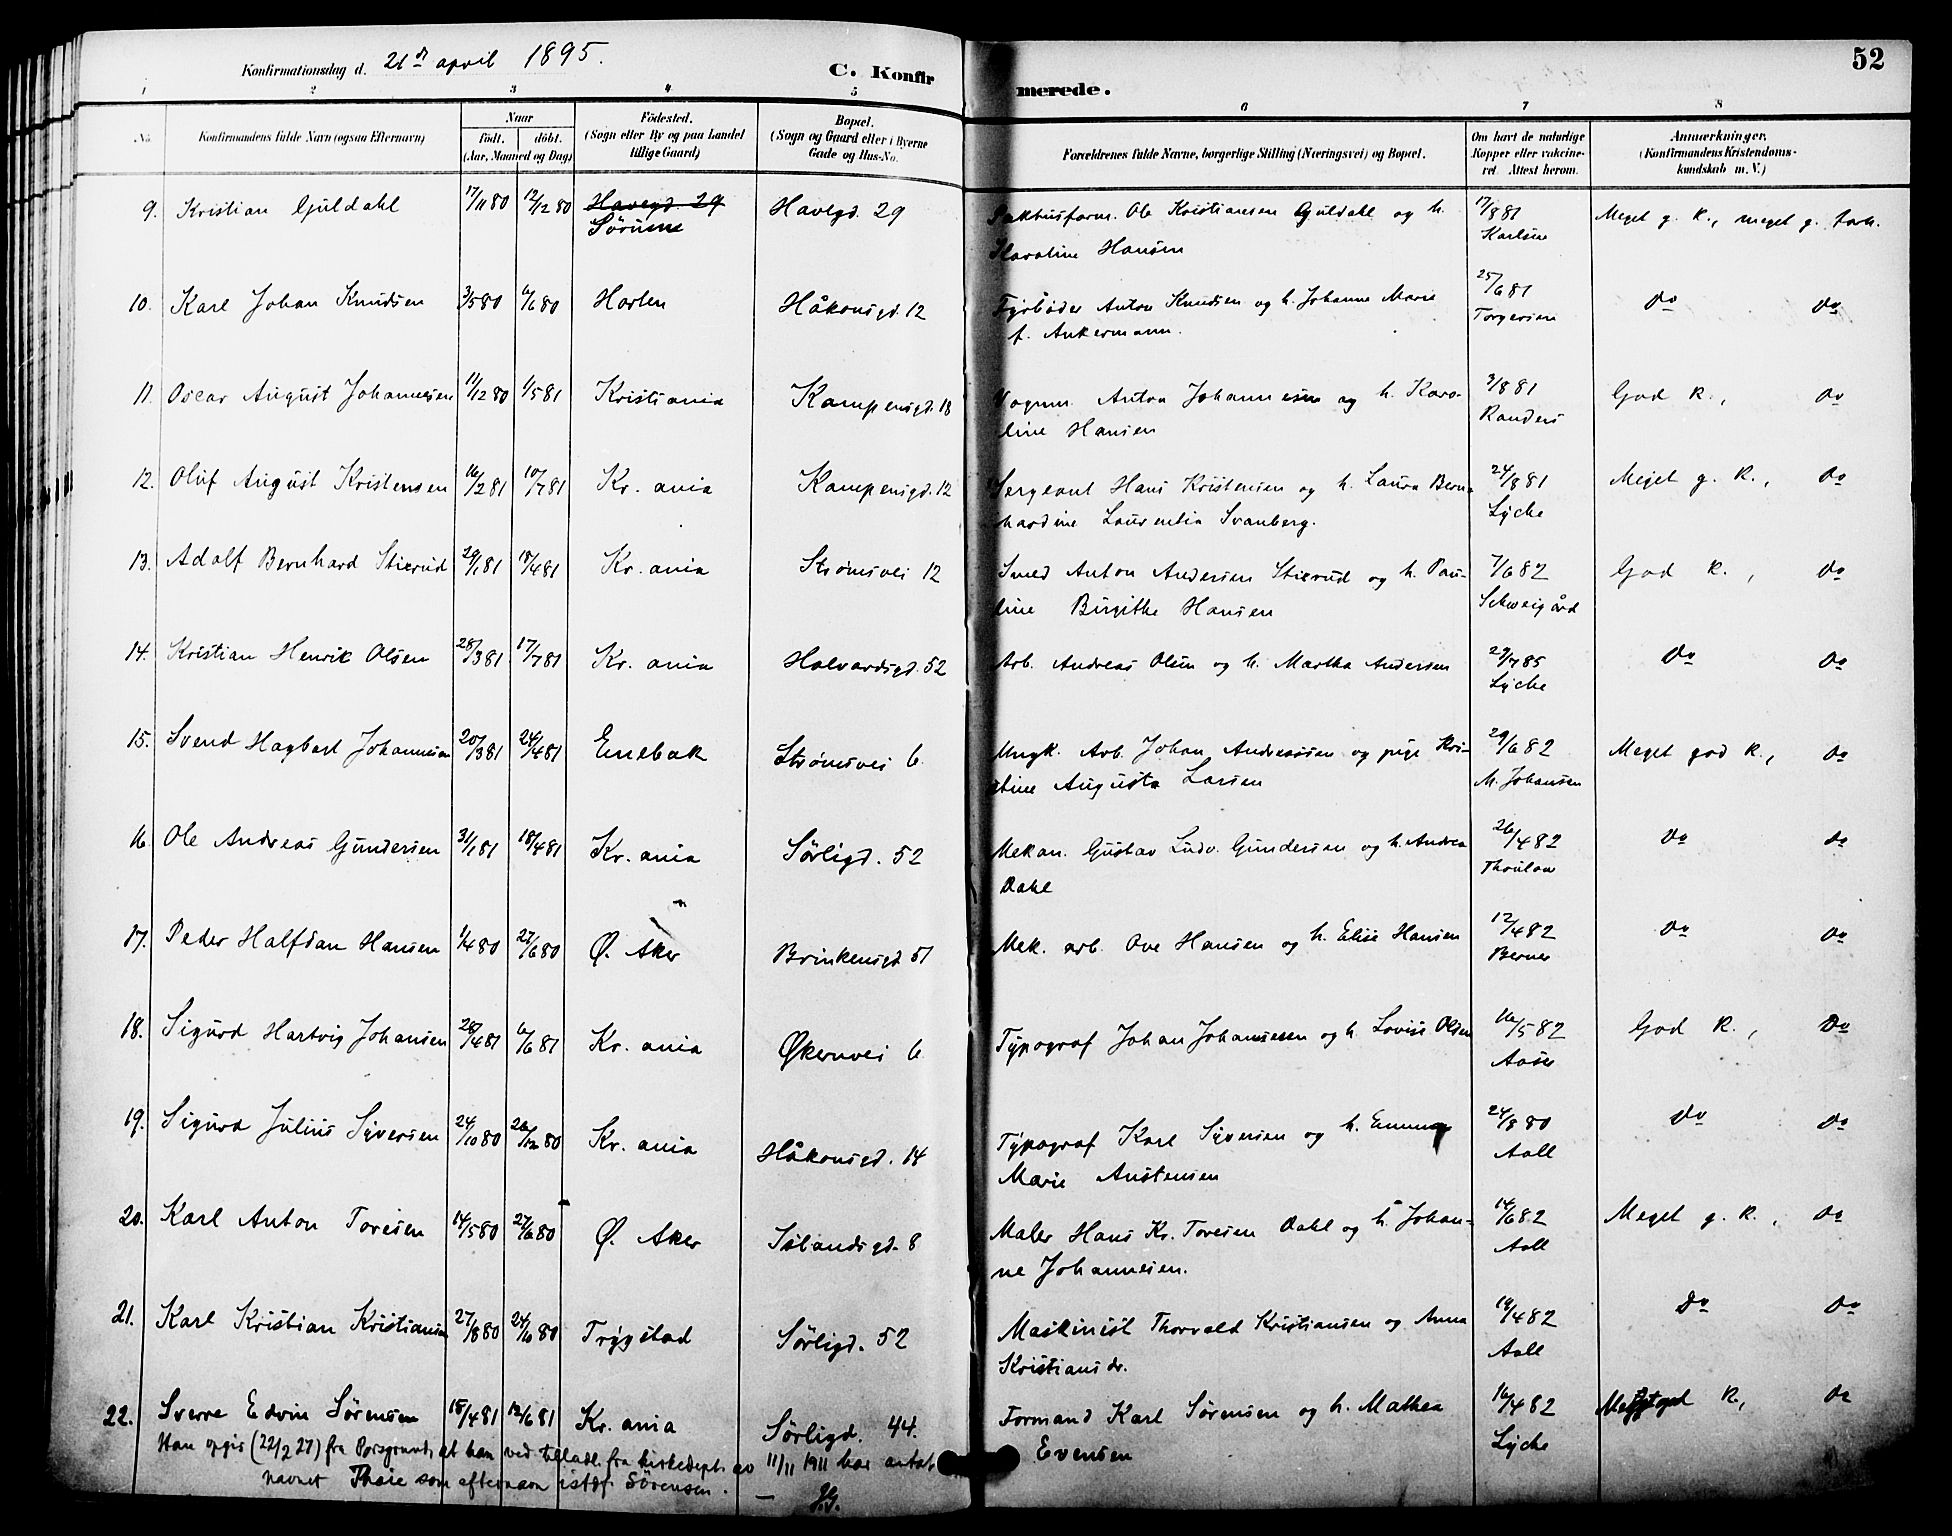 Konfirmationsdag d. 21de april 1895.
C. Konfirmerede.
52
1 2 3 4 5 6 7 8
No. Konfirmandens fulde Navn (ogsaa Efternavn) Naar født. døbt. (Aar, Maaned og Dag) Fødested. (Sogn eller By og paa Landet tillige Gaard) Bopæl. (Sogn og Gaard eller i Byerne Gade og Hus-No. Forældrenes fulde Navne, borgerlige Stilling (Næringsvei) og Bopæl. Om havt de naturlige Kopper eller vakcineret. Attest herom. Anmærkninger. (Konfirmandens Kristendomskundskab m. V.)
9. Kristian Guldahl 17/11 80 12/12 80 Havegd. 29 Havegd. 29 Pakhusform. Ole Kristiansen Guldahl og h. 17/8 81 Meget g. K., meget g. forh.
Sørum Karoline Hansen Karlsen
10. Karl Johan Knudsen 3/5 80 6/6 80 Horten Håkonsgd. 12 Fyrbøder Anton Knudsen og h. Johanne Marie 25/6 81 do do
f. Ankermann. Torgersen
11. Oscar August Johannesen 11/12 80 1/5 81 Kristiania Kampensgd. 18 Vognm. Anton Johannesen og h. Karo- 3/8 81 God K., do
line Hansen Randers
12. Oluf August Kristensen 16/2 81 10/7 81 Kr. ania Kampensgd. 12 Sergeant Hans Kristensen og h. Laura Bern- 24/8 81 Meget g. K., do
hardine Laurentia Svanberg. Lyche
13. Adolf Bernhard Stixrud 29/1 81 18/4 81 Kr. ania Strømsvei 12 Smed Anton Andersen Stixrud og h. Pau- 7/6 82 God K., do
line Birgithe Hansen Schweigård
14. Kristian Henrik Olsen 28/3 81 17/7 81 Kr. ania Halvardsgd. 52 Arb. Andreas Olsen og h. Martha Andersen 29/7 85 do do
Lyche
15. Svend Hagbart Johannesen 20/3 81 24/4 81 Enebak Strømsvei 6 Ungk. Arb. Johan Andreassen og pige Kri- 29/6 82 Meget god K., do
stine Augusta Larsen M. Johansen
16. Ole Andreas Gundersen 31/1 81 18/4 81 Kr. ania Sørligd. 52 Mekan. Gustav Ludv. Gundersen og h. Andrea 26/4 82 do do
Dahl Thaulow
17. Peder Halfdan Hansen 1/4 80 27/6 80 Ø. Aker Brinkensgd. 51 Mek. arb. Ove Hansen og h. Elise Hansen 12/4 82 do do
Berner
18. Sigurd Hartvig Johansen 28/4 81 6/6 81 Kr. ania Økernvei 6 Typograf Johan Johannesen og h. Lovise Olsen 16/5 82 God K., do
Aaser
19. Sigurd Julius Syversen 24/10 80 26/12 80 Kr. ania Håkonsgd. 14 Typograf Karl Syversen og h. Emma 24/8 80 do do
Marie Austensen Aall
20. Karl Anton Toresen 14/5 80 27/6 80 Ø. Aker Islandsgd. 8 Maler Hans Kr. Toresen Dahl og h. Johan- 14/6 82 Meget g. K., do
ne Johannesen. Aall
21. Karl Kristian Kristiansen 27/8 80 24/10 80 Trygstad Sørligd. 52 Maskinist Thorvald Kristiansen og Anna 19/4 82 do do
Kristiansdr. Aall
22. Sverre Edvin Sørensen 15/4 81 12/6 81 Kr. ania Sørligd. 44. Formand Karl Sørensen og h. Mathea 16/4 82 K., do
Evensen Lyche
Han opgir (22/2 27) fra Porsgrund, at han ved tillad. fra kirkedept. av 11/11 1911 har antat
navnet Thoie som efternavn istdf. Sørensen. — J.G.